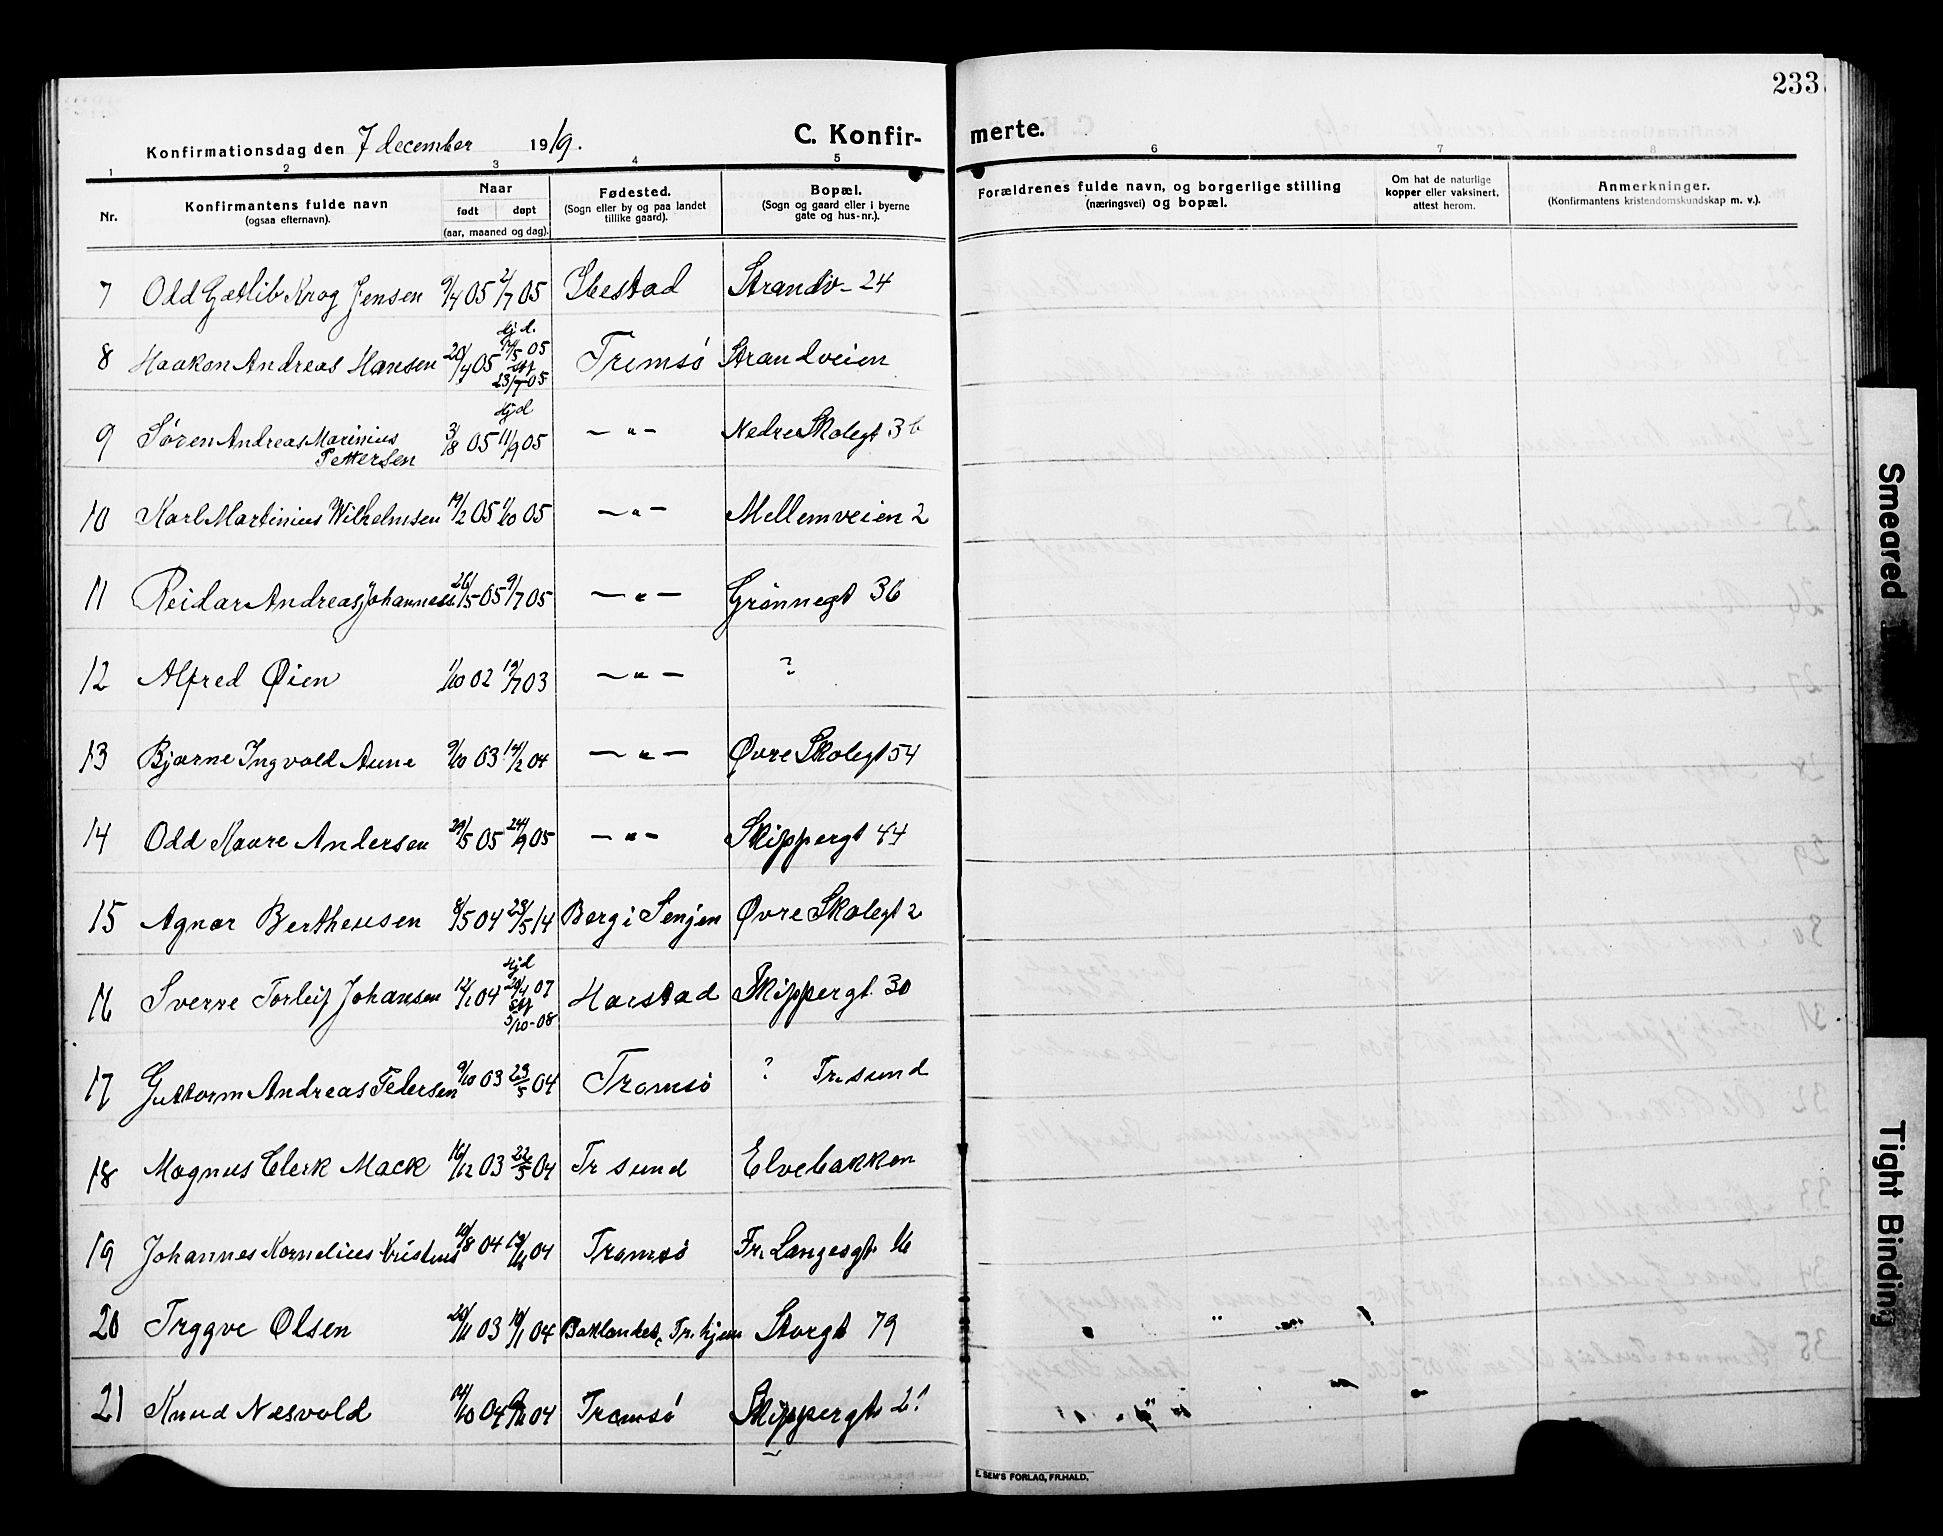 233
Konfirmationsdag den 7 december 1919.
C. Konfir- merte.
1 2 3 4 5 6 7 8
Nr.
Konfirmantens fulde navn
(ogsaa efternavn).
Naar
født døpt
(aar, maaned og dag).
Fødested.
(Sogn eller by og paa landet
tillike gaard).
Bopæl.
(Sogn og gaard eller i byerne
gate og hus-nr.).
Forældrenes fulde navn, og borgerlige stilling
(næringsvei) og bopæl.
Om hat de naturlige
kopper eller vaksinert,
attest herom.
Anmerkninger.
(Konfirmantens kristendomskundskap m. v.).
7 Odd Gotlib Krog Jensen 9/4 05 2/7 05 Ibestad Strandv- 24
8 Haakon Andreas Hansen 20/4 05 Hj d. 14/5 05 stf 23/7 05 Tromsø Strandveien
9 Søren Andreas Marinius
Pettersen 3/8 05 Hjd 11/9 05 — " — Nedre Skolegt 36
10 Karl Martinius Wilhelmsen 19/2 05 1/10 05 — " — Mellemveien 2
11 Reidar Andreas Johanness. 26/5 05 9/7 05 — " — Grønnegt 36
12 Alfred Øien 1/10 02 19/7 03 — " — ?
13 Bjarne Ingvald Aune 9/10 03 14/2 04 — " — Øvre Skolegt 54
14 Odd Kaare Andersen 29/5 05 24/9 05 — " — Skippergt 44
15 Agnar Bertheusen 8/5 04 28/5 14 Berg i Senjen Øvre Skolegt 2
16 Sverre Torleif Johansen 12/1 04 Hjd 29/4 07 stf 5/10-08 Harstad Skippergt. 30
17 Guttorm Andreas Pedersen 9/10 03 23/5 04 Tromsø ? Tr. sund
18 Magnus Clerk Mack 16/12 03 22/5 04 Tr sund Elvebakken
19 Johannes Kornelius Kristens 19/8 04 04 Tromsø Fr. Langesgt. 16
20 Trygve Olsen 20/11 03 10/1 04 Baklandet, Tr.hjem Storgt 79
21 Knud Nesvold 14/10 04 04 Tromsø Skippergt.
E. SEM'S FORLAG, FR.HALD.
Smeared
Tight Binding